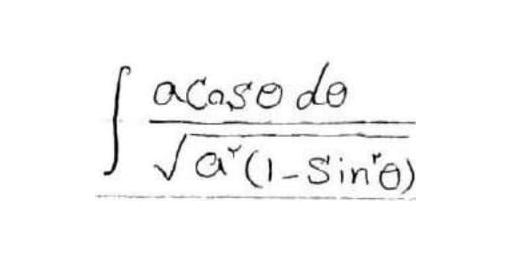 ∫ acosθ dθ / √a²(1-Sin²θ)